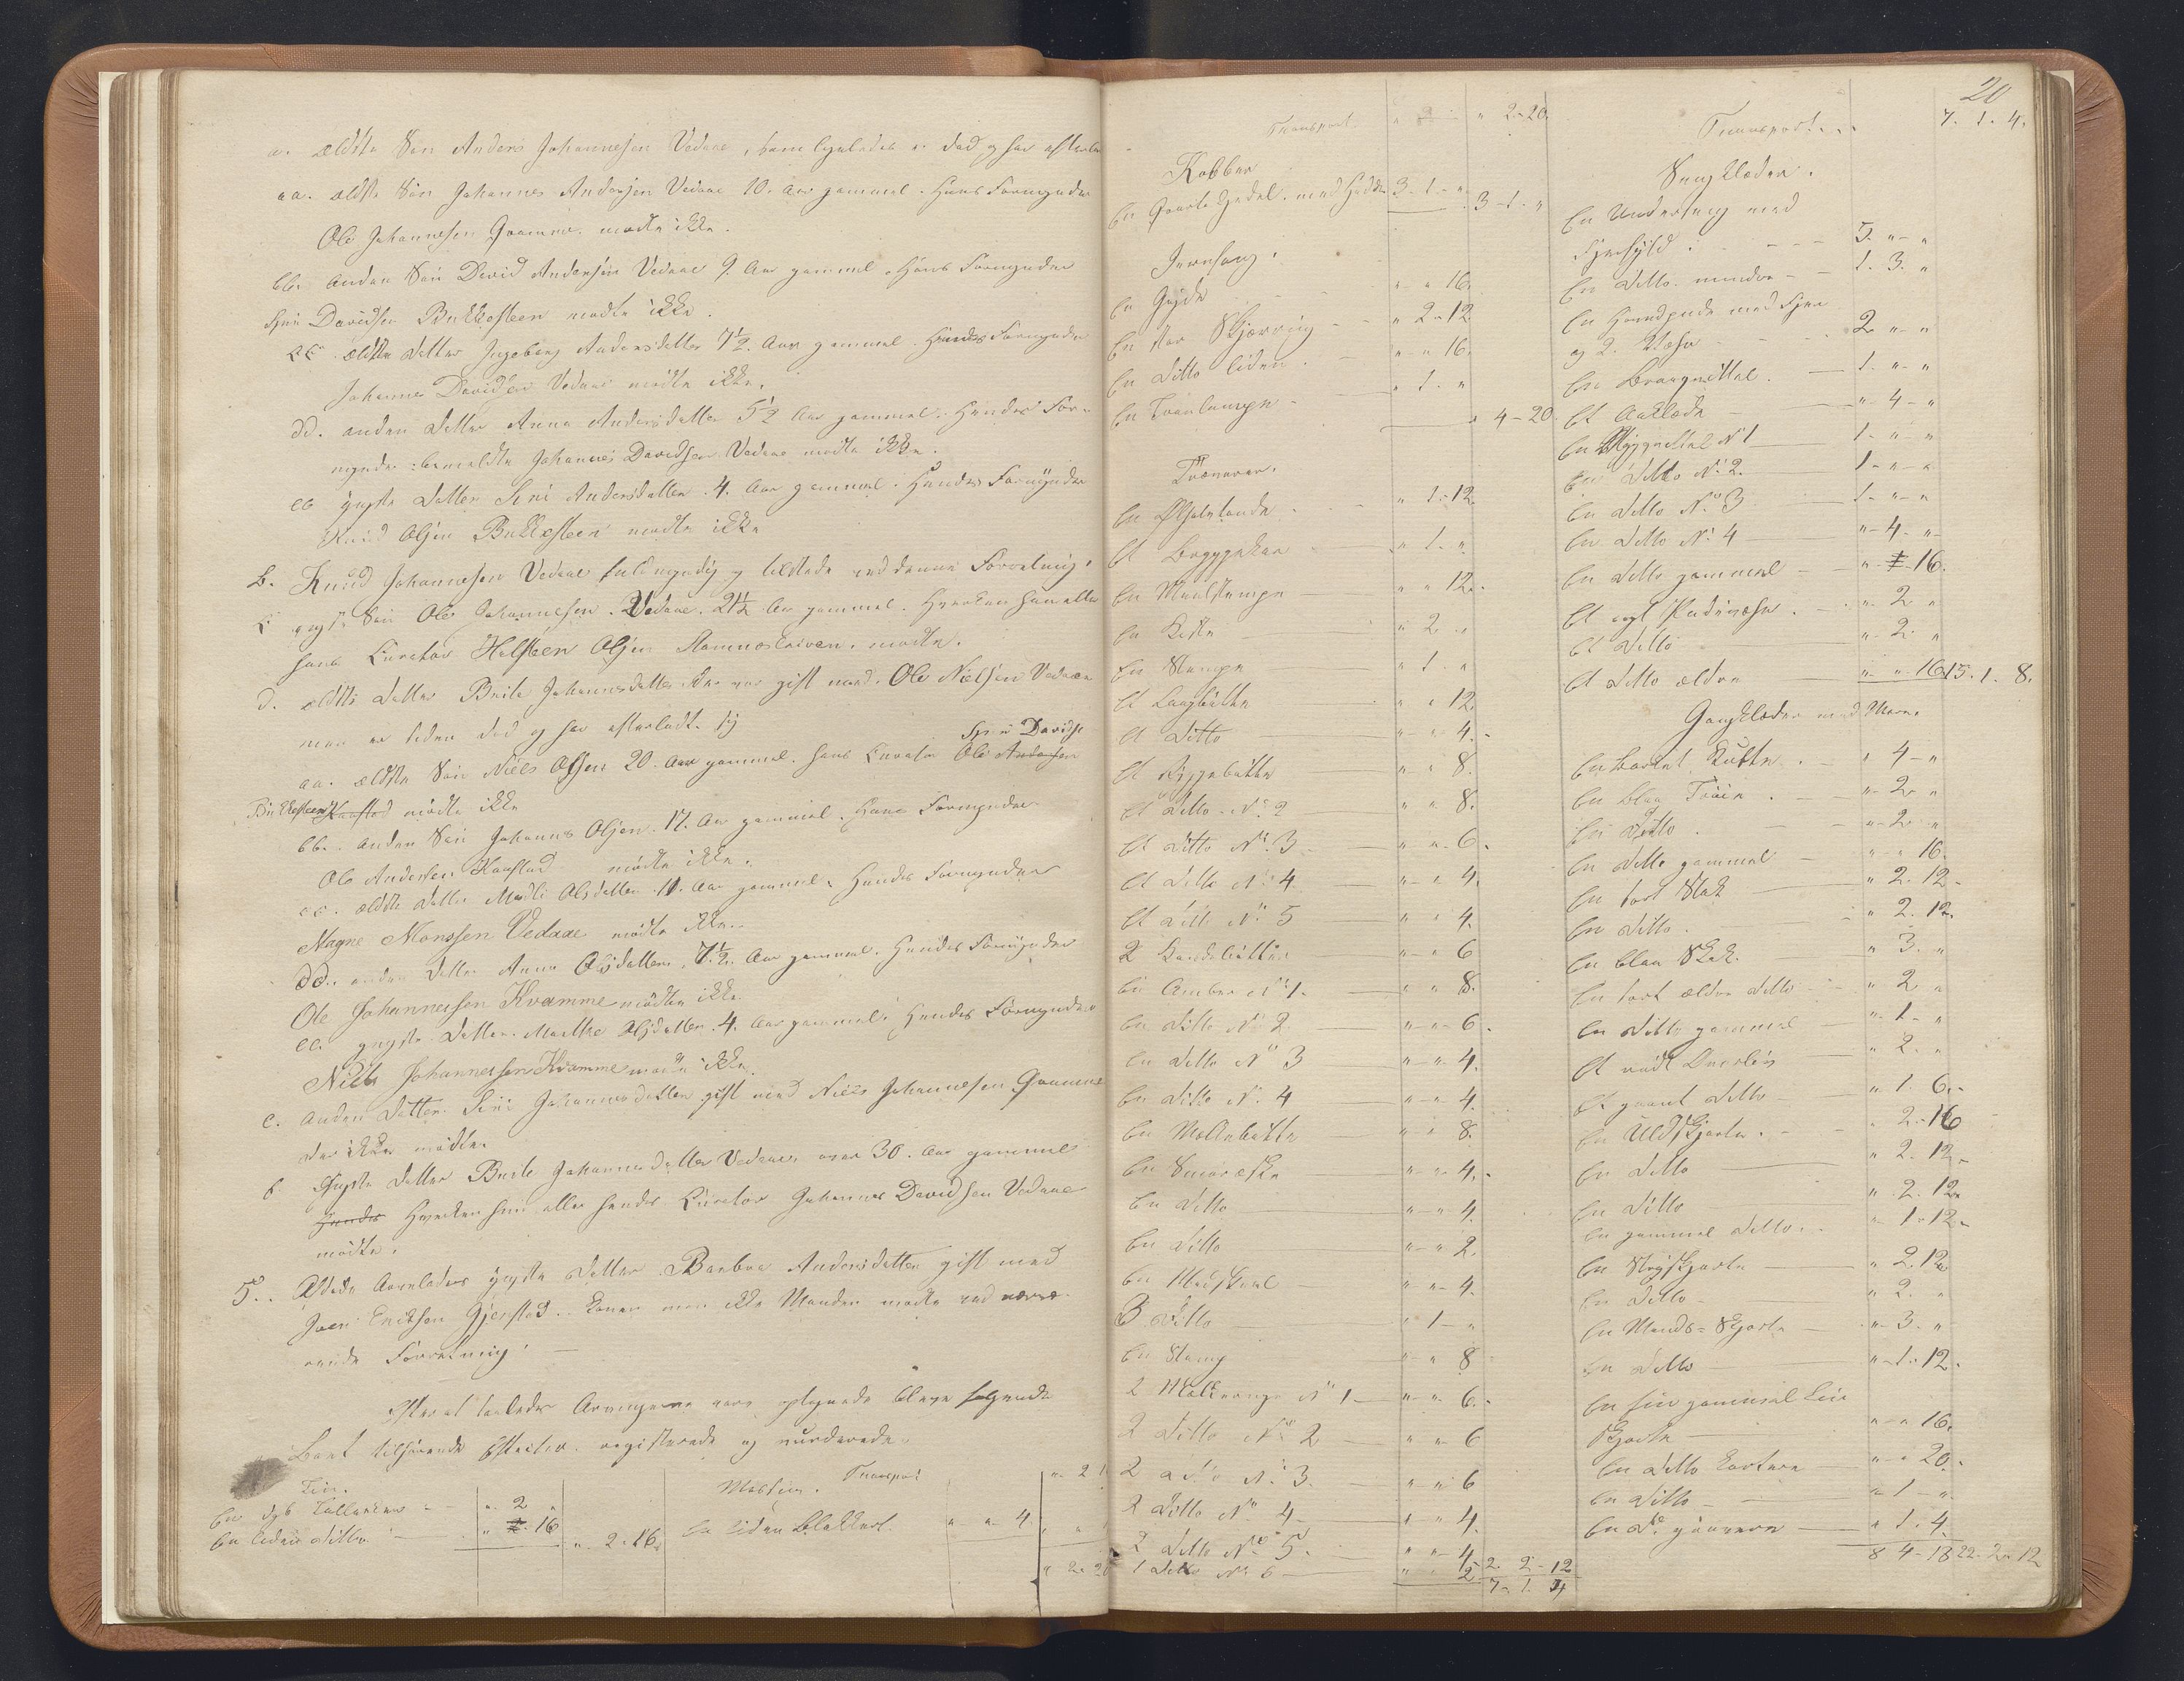 a. ældste Søn Anders Johannesen Vedaae, som ligeledes er død og har efterladt
aa. ældste Søn Johannes Andersen Vedaae 10. Aar gammel. Hans Formynder
Ole Johannesen Qvamme mødte ikke.
bb. anden Søn David Andersen Vedaae 9 Aar gammel. Hans Formynder
Davidsen Bukkesteen mødte ikke.
cc. ældste Datter Ingeborg Andersdatter 7½ Aar gammel. Hendes Formynder
Johannes Davidsen Vedaae mødte ikke.
dd. anden Datter Anna Andersdatter 5½ Aar gammel. Hendes For-
mynder bemeldte Johannes Davidsen Vedaae mødte ikke.
ee yngste Datter Sini Andersdatter 4. Aar gammel. Hendes Formynder
Knud Olsen Bukkesteen mødte ikke
b. Knud Johannesen Vedaae fuldmyndig og tilstede ved denne Forretning.
c yngste Søn Ole Johannesen Vedaae 21½ Aar gammel. Hverken han eller
hans Curator Helsteen Olsen mødte.
d. ældste Datter Brite Johannesdatter der var gift med Ole Nielsen Vedaae
men er siden død og har efterladt sig
Davidse
aa. ældste Søn Niels Olsen 20. Aar gammel. hans Curator Ole Andersen
Bukkesteen Haastad mødte ikke
bb. anden Søn Johannes Olsen 17. Aar gammel. Hans Formynder
Ole Andersen Haastad mødte ikke.
cc. ældste Datter Madli Olsdatter 11. Aar gammel. Hendes Formynder
Magne Monssen Vedaae mødte ikke.
dd. anden Datter Anna Olsdatter 7½ Aar gammel. Hendes Formynder
Ole Johannessen Kvamme mødte ikke
ee. yngste Datter Marthe Olsdatter 4. Aar gammel. Hendes Formynder
Niels Johannessen Kvamme mødte ikke.
e. anden Datter Sini Johannesdatter gift med Niels Johannesen Qvamme
der ikke mødte.
f. yngste Datter Brite Johannesdatter Vedaae over 30. Aar gammel
Hendes Hverken hun eller hendes Curator Johannes Davidsen Vedaae
mødte.
5. Afdøde Arveladers yngste Datter Barbra Andersdatter gift med
Joen Erikson Gjerstad. Konen men ikke Manden mødte ved nærvæ-
rende Forretning.
Efterat saaledes Arvingerne vare optegnede bleve følgende
Boet tilhørende Effecter registerede og vurderede.
Tin.
En dyb Tallerken " 2 "
En liden Ditto " " 16 " 2. 16.
Transport " 2 1
Messing.
En liden Blekhorn " " 4.
" 2. 20
20
Transport " " 2-20.
Kobber
En Gryte Hedel. med Hadde 3-1-" 3-1-"
Jernfang.
En Gryde " " 16.
En stor Skjærring " 2-12
En Ditto liden " " 16.
En Tranlampe " 1. " " 4-20
Trævarer.
En Ølhalvtønde " 1-12
Et Bryggekar " 1. "
En Maalstampe " " 12.
En Kiste " 2 "
En Stampe " 1. "
Et Laagbøtte " " 12.
Et Ditto " " 4.
Et Ringebøtte " " 8.
Et Ditto No 2 " " 8.
Et Ditto No 3 " " 6.
Et Ditto No 4 " " 4.
Et Ditto No 5 " " 4.
2 Vandbøtter " " 6
En Amber No 1. " " 8.
En Ditto No 2 " " 6.
En Ditto No 3 " " 4.
En Ditto No 4 " " 4.
En Mælkebøtte " " 8.
En Smøræske " " 4.
En Ditto " " 4.
En Ditto " " 2.
En Madskaal " " 4.
3 Ditto " 1 "
En Stamp " " 8
2 Mælkeringe No 1 " " 6.
2 Ditto No 2 " " 6
2 Ditto No 3. " " 6
2 Ditto No 4 " " 4.
2 Ditto No 5. " " 4
1 Ditto No 6 " " 2 2. 2-12
7. 1. 4
Transport... 7. 1. 4.
Sengklæder.
En Underseng med
Fjerfyld 5. " "
En Ditto mindre 1. 3. "
En Hovedpude med Fjer
og 2. Væser 2 " "
En Brangnittel 1. " "
Et Aaklæde " 4 "
En Ryggnittel No 1 1. " "
En Ditto No 2. 1. " "
En Ditto No 3 1. " "
En Ditto No 4 " 4. "
En Ditto gammel " " 16.
Et nyt Pudevæser " 2 "
Et Ditto " 2 "
Et Ditto ældre " " 16 15. 1. 8.
Gangklæder med Mere.
En " 4 "
En blaa Trøie " 2 "
En Ditto " 2 "
En Ditto gammel " " 16.
En sort Stak " 2. 12.
En Ditto " 2. 12.
En blaa Stak " 3. "
En sort ældre Ditto " 2 "
En Ditto gammel " 1 "
Et rødt Overliv " 2. "
Et grønt Ditto " 1. 6.
En Uldskjorte " 2-16
En Ditto " 2. 12.
En Ditto " 2. 12.
En gammel Ditto " 1-12.
En Strieskjorte " 2. 12
En Ditto " 2. "
En Mands-Skjorte " 3. "
En Ditto " 1. 12.
En fin gammel Lin
Skjorte " " 16.
En Ditto kortere " " 20.
En Ditto " 1 "
En Do. grovere " 1. 4.
8 4-18 22. 2. 12